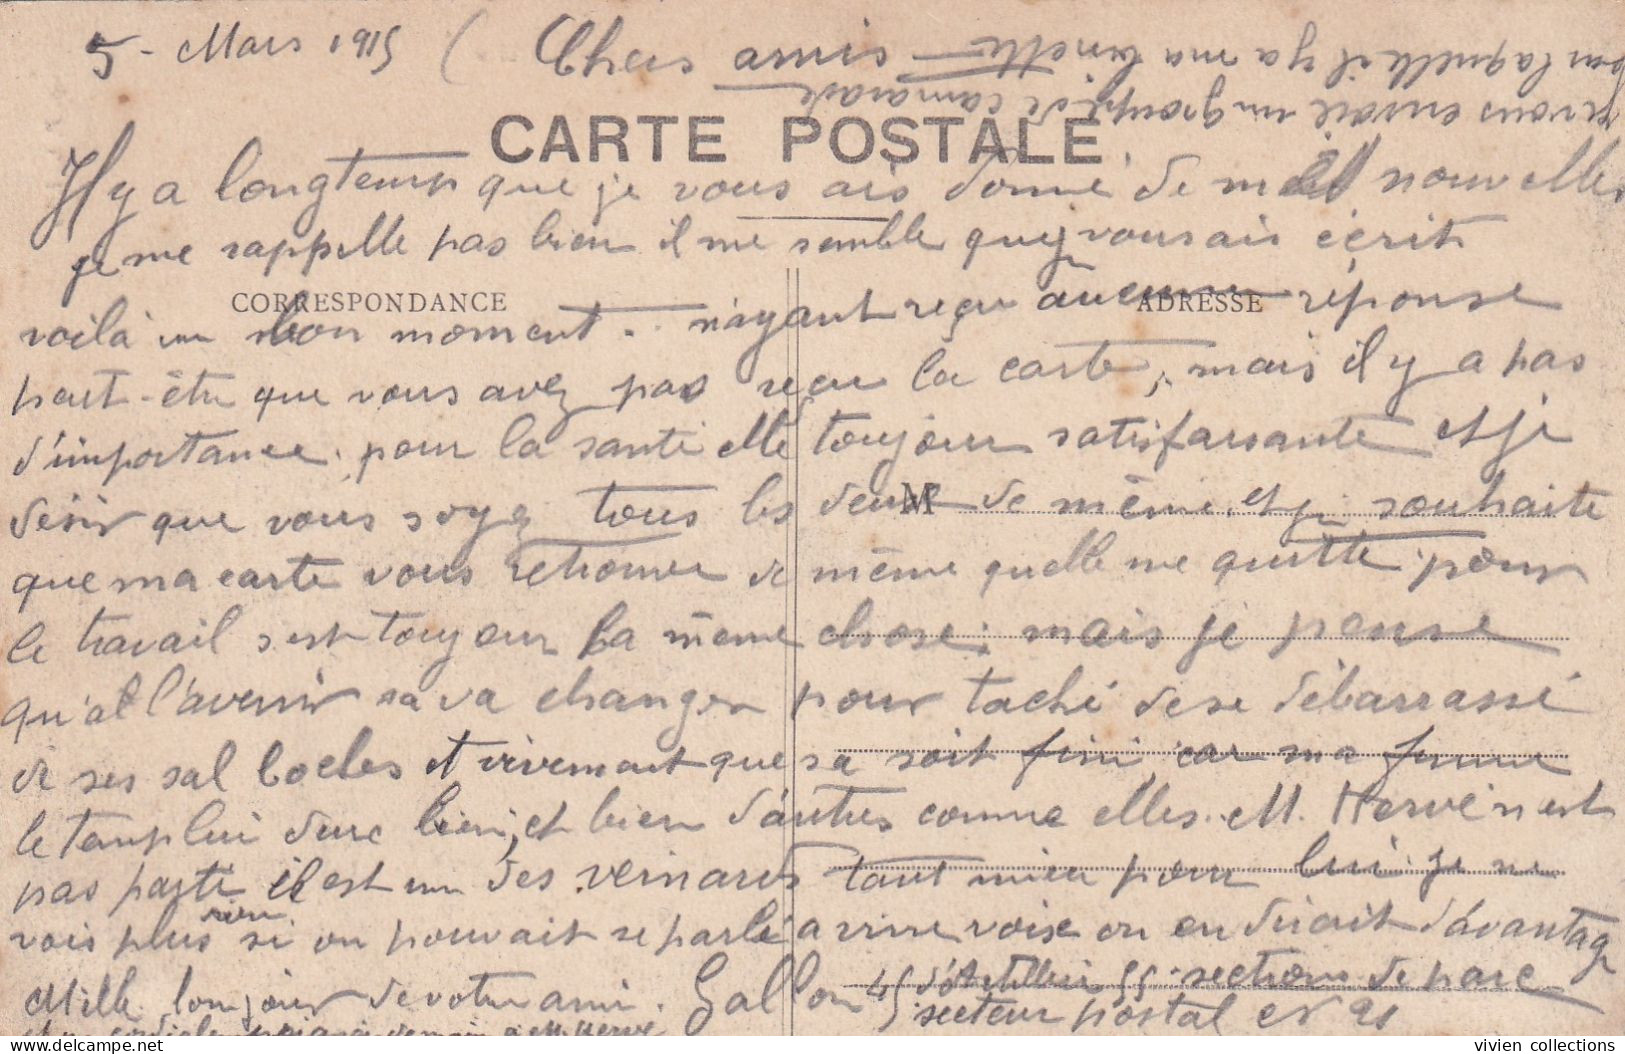 5 - Mars 1915 ( Chers amis
je vous envoie un groupe de camarade
sur laquelle il y a ma binette
CARTE POSTALE
Il y a longtemp que je vous ais donné de mes nouvelles
je me rappelle pas bien il me semble que vous ais écrit
CORRESPONDANCE
ADRESSE
voilà un bon moment. n'ayant reçu aucune réponse
peut-être que vous avez pas reçu la carte, mais il y a pas
d'importance. pour la santé elle toujour satisfaisante et je
désir que vous soyez tous les deux de même. et je souhaite
M
que ma carte vous retrouve de même quelle me quitte. pour
le travail s'est toujour la même chose: mais je pense
qu'a l'avenir sa va changer pour taché de se débarrassé
de ses sal boches et vivement que sa soit fini car ma femme
le temp lui dure bien, et bien d'autres comme elles. M. Hervé n'est
pas parti il est un des veinards tant mieu pour lui. je ne
vois plus rien si on pouvait se parlé a vive voix on en dirait d'avantage
Mille bonjour de votre ami. Gallon 45 d'Artillerie 55 sections de parc
secteur postal N° 21
M. Hervé
vivien collections